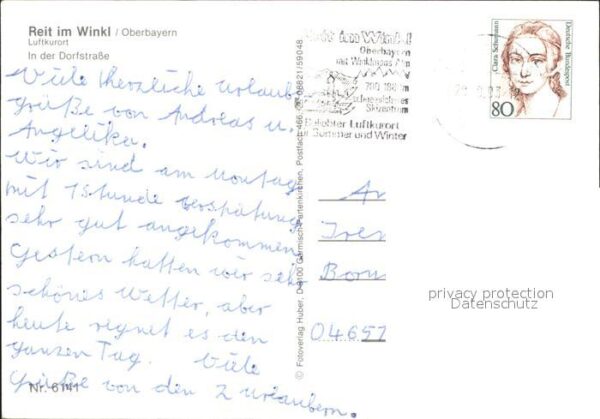 Reit im Winkl / Oberbayern
Luftkurort
In der Dorfstraße
Viele herzliche Urlaubs
grüße von Andreas u.
Angelika.
Wir sind am Montag
mit 1 Stunde verspätung
sehr gut angekommen
Gestern hatten wir sehr
schönes Wetter, aber
heute regnet es den
ganzen Tag. Viele
Grüße von den 2 Urlaubern.
Nr. 6141
© Fotoverlag Huber, D-8100 Garmisch-Partenkirchen, Postfach 466, 08821/59048
Reit im Winkl
Oberbayern
mit Winklmoos Alm
700 1800 m
Schneesicheres
Skizentrum
Beliebter Luftkurort
in Sommer und Winter
Clara Schumann
Deutsche Bundespost
80
An
Born
04657
privacy protection
Datenschutz